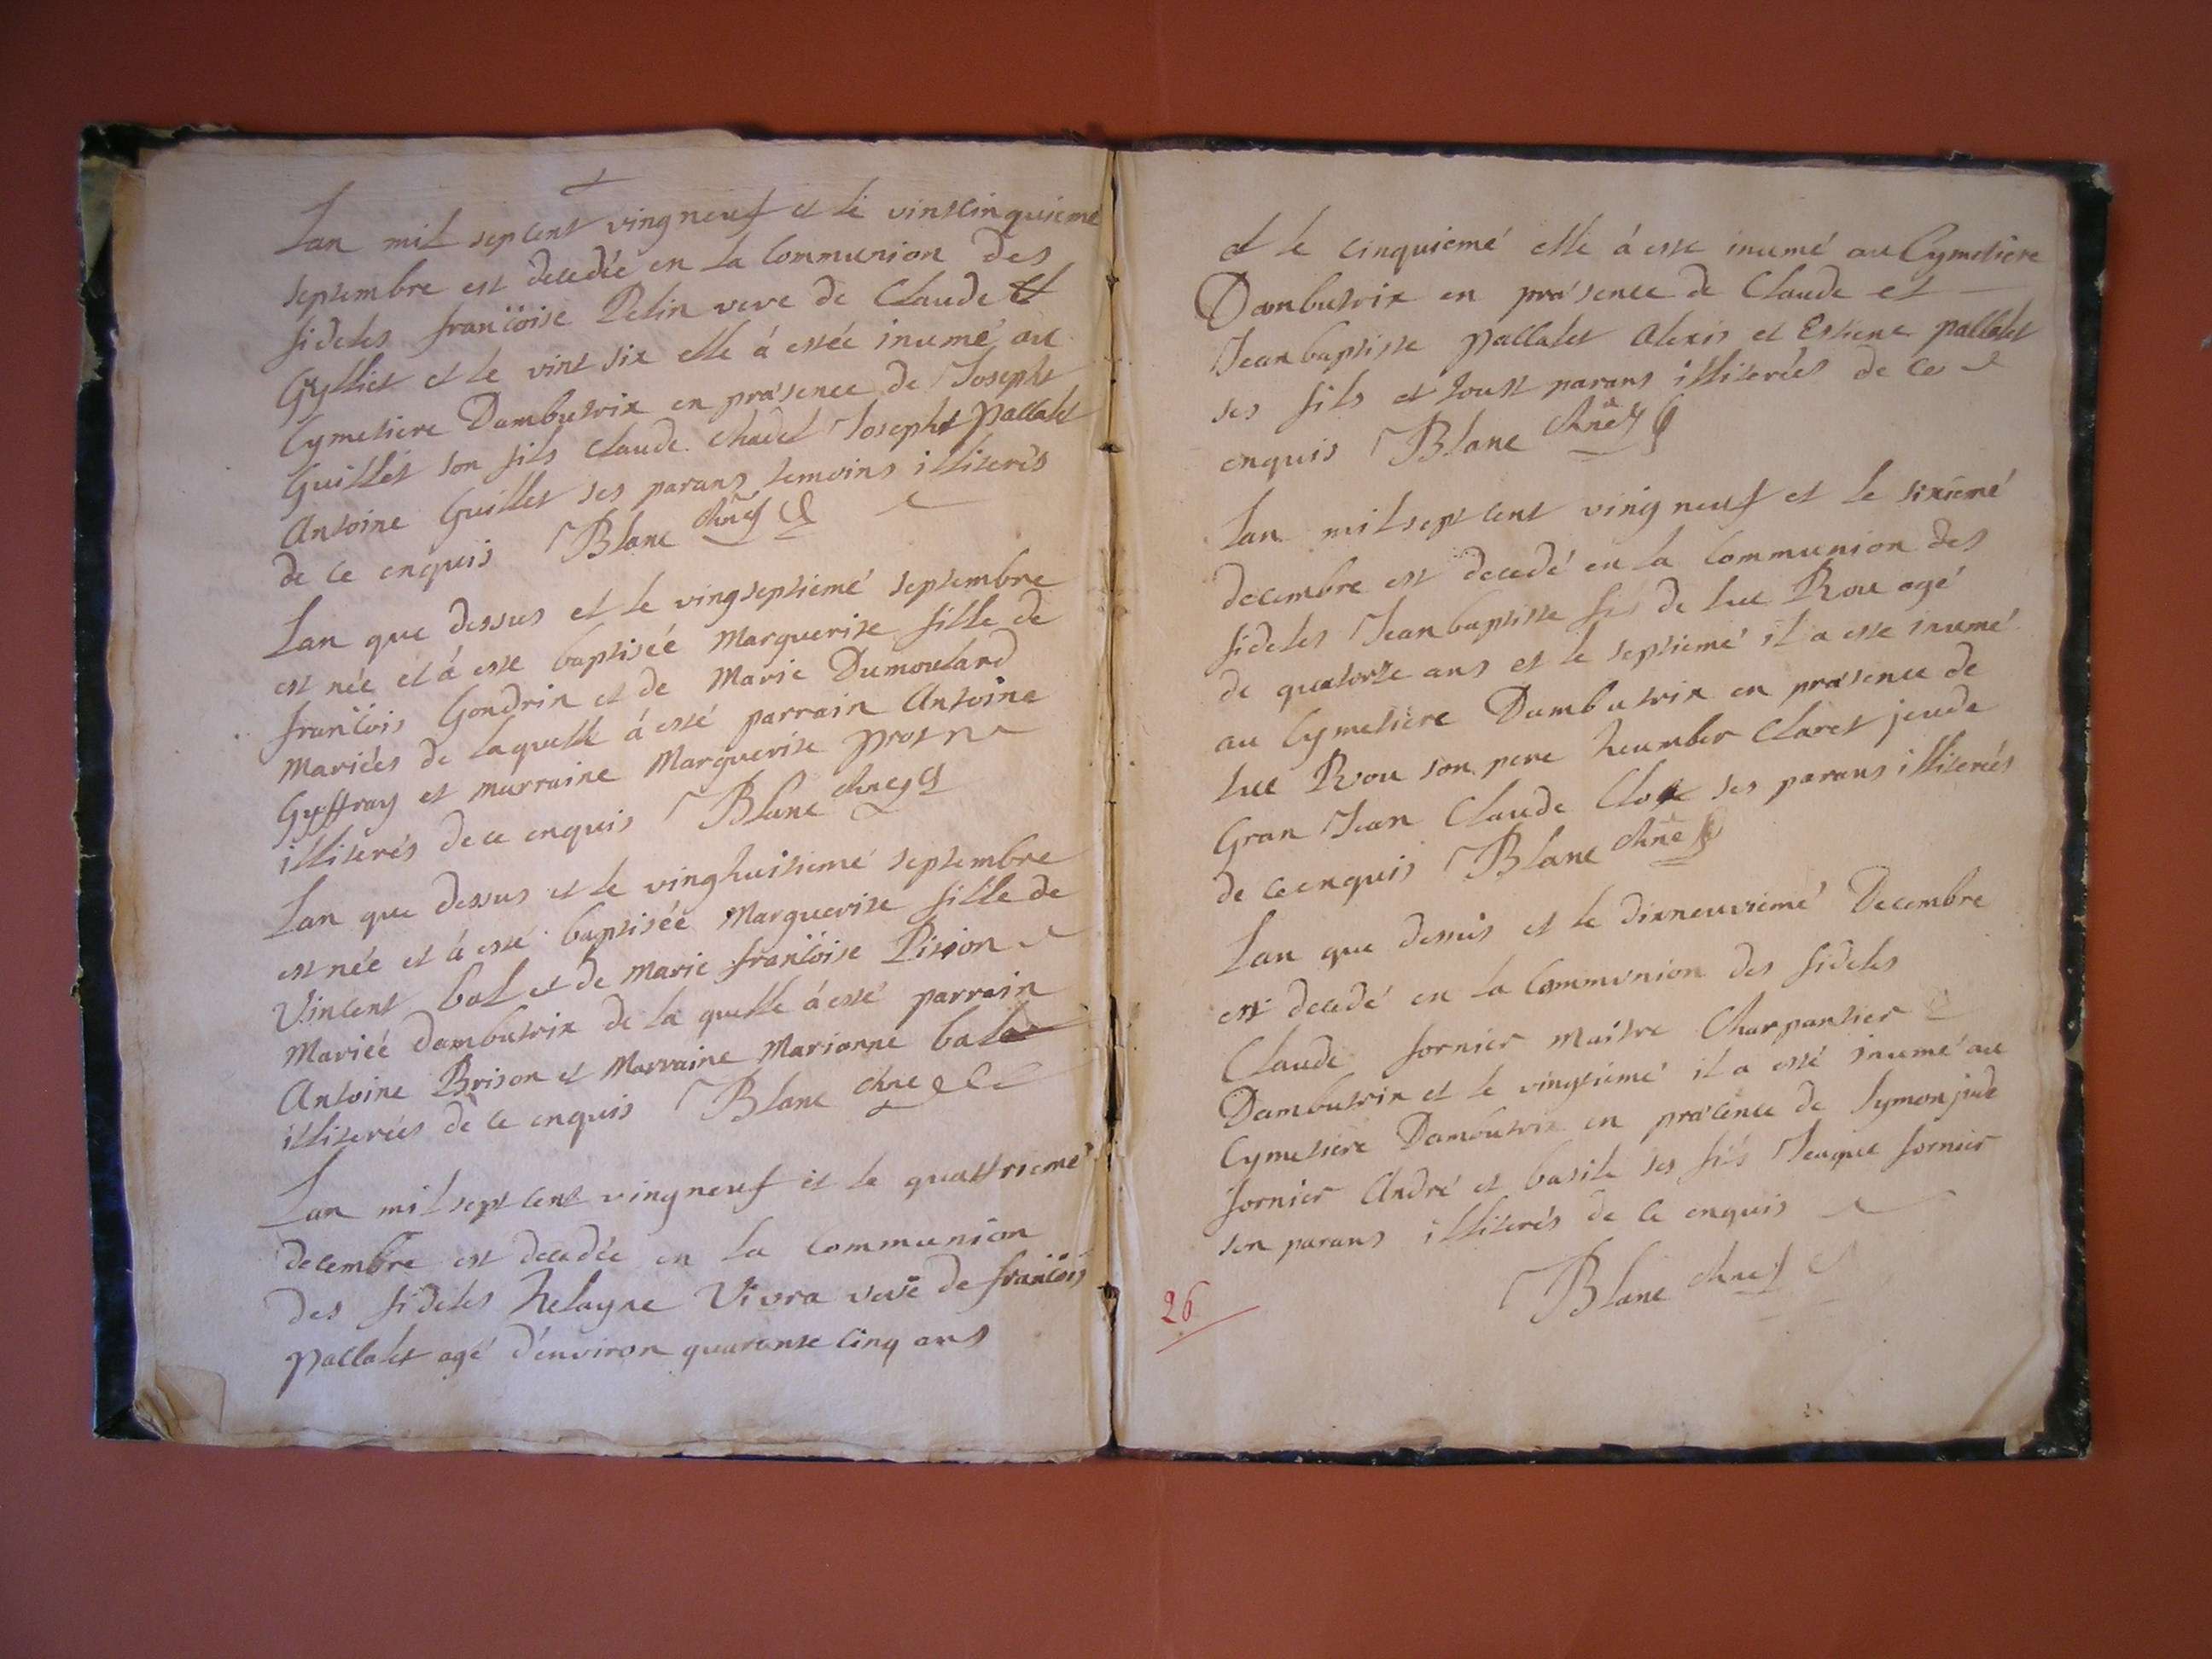 Lan mil sepcent vingneuf et le vinscinquieme
septembre est decedée en la Communion des
fideles françoise Pelin veve de Claude
Gylliet et le vint six elle á estée inumé au
Cymetiere Dambutrix en præsence de Josepht
Guillet son fils Claude Chadel Josepht pallalet
Antoine Guillet ses parans temoins illiterés
de ce enquis Blanc
Lan que dessus et le vingseptiemé septembre
est née et á este baptisée Marguerite fille de
françois Gondrin et de Marie Dumoulard
Mariées de laquelle á esté parrain Antoine
Gyffray et marraine Marguerite prost
illiterés de ce enquis Blanc
Lan que dessus et le vinghuitiemé septembre
est née et á esté baptisée Marguerite fille de
Vincent bal et de Marie françoise Pision
Mariéé dambutrix de la quelle á esté parrain
Antoine Brison et Marraine Marianne bal
illiterées de ce enquis Blanc
Lan mil sept cent vingneuf et le quattriemé
decembre est decedée en la communion
des fideles helayne Vivra veve de françois
pallalet agé d'environ quarante cinq ans
et le cinquiemé elle á este inumé au Cymetiere
Dambutrix en præsence de Claude et
Jean baptiste pallalet Alexis et Estiene pallalet
ses fils et toust parans illiterées de ce
enquis Blanc
Lan mil sept cent ving neuf et le sixiemé
decembre est decedé en la Communion des
fideles Jean baptiste fils de luc Rou agé
de quatorze ans et le septiemé il a este inumé
au Cymetiere Dambutrix en præsence de
luc Rou son pere heumber Claret jeude
Gran Jean Claude ses parans illiterées
de ce enquis Blanc
Lan que dessus et le dixneuviemé Decembre
est decedé en la Communion des fideles
Claude fornier maitre Charpantier
Dambutrix et le vingtiemé il a esté inumé au
Cymetiere Dambutrix en præcence de Symon jude
fornier André et basile ses fils Jeaque fornier
son parans illiterés de ce enquis
Blanc
26